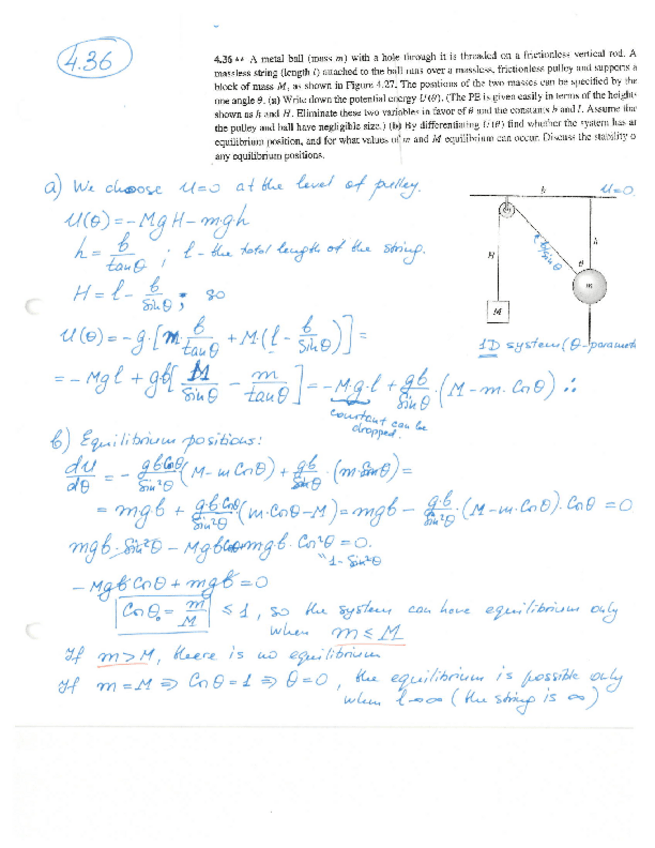 4.36
4.36 ** A metal ball (mass m) with a hole through it is threaded on a frictionless vertical rod. A
massless string (length l) attached to the ball runs over a massless, frictionless pulley and supports a
block of mass M, as shown in Figure 4.27. The positions of the two masses can be specified by the
one angle θ. (a) Write down the potential energy U(θ). (The PE is given easily in terms of the heights
shown as h and H. Eliminate these two variables in favor of θ and the constants b and l. Assume that
the pulley and ball have negligible size.) (b) By differentiating U(θ) find whether the system has an
equilibrium position, and for what values of m and M equilibrium can occur. Discuss the stability o
any equilibrium positions.
a) We choose U=0 at the level of pulley.
U(θ)=-MgH-mgh
h = b/tanθ ; l - the total length of the string.
H = l - b/Sinθ ; so
U(θ) = -g·[m·b/tanθ + M·(l - b/Sinθ)] =
= -Mgl + gb[M/Sinθ - m/tanθ] = -M·g·l + gb/Sinθ·(M-m·Cosθ) ∴
constant can be
dropped.
b
U=0
b/Sinθ
h
H
θ
m
M
1D system (θ-paramet
b) Equilibrium positions:
dU/dθ = - gbCosθ/Sin²θ (M-mCosθ) + gb/Sinθ·(mSinθ) =
= mgb + g·b·Cosθ/Sin²θ (m·Cosθ-M) = mgb - g·b/Sin²θ·(M-m·Cosθ)·Cosθ = 0
mgb·Sin²θ - MgbCosθ+mgb·Cos²θ = 0.
"1-Sin²θ
-MgbCosθ + mgb = 0
Cosθ₀ = m/M ≤ 1, so the system can have equilibrium only
when m ≤ M
If m>M, there is no equilibrium
If m=M ⇒ Cosθ=1 ⇒ θ=0, the equilibrium is possible only
when l→∞ (the string is ∞)